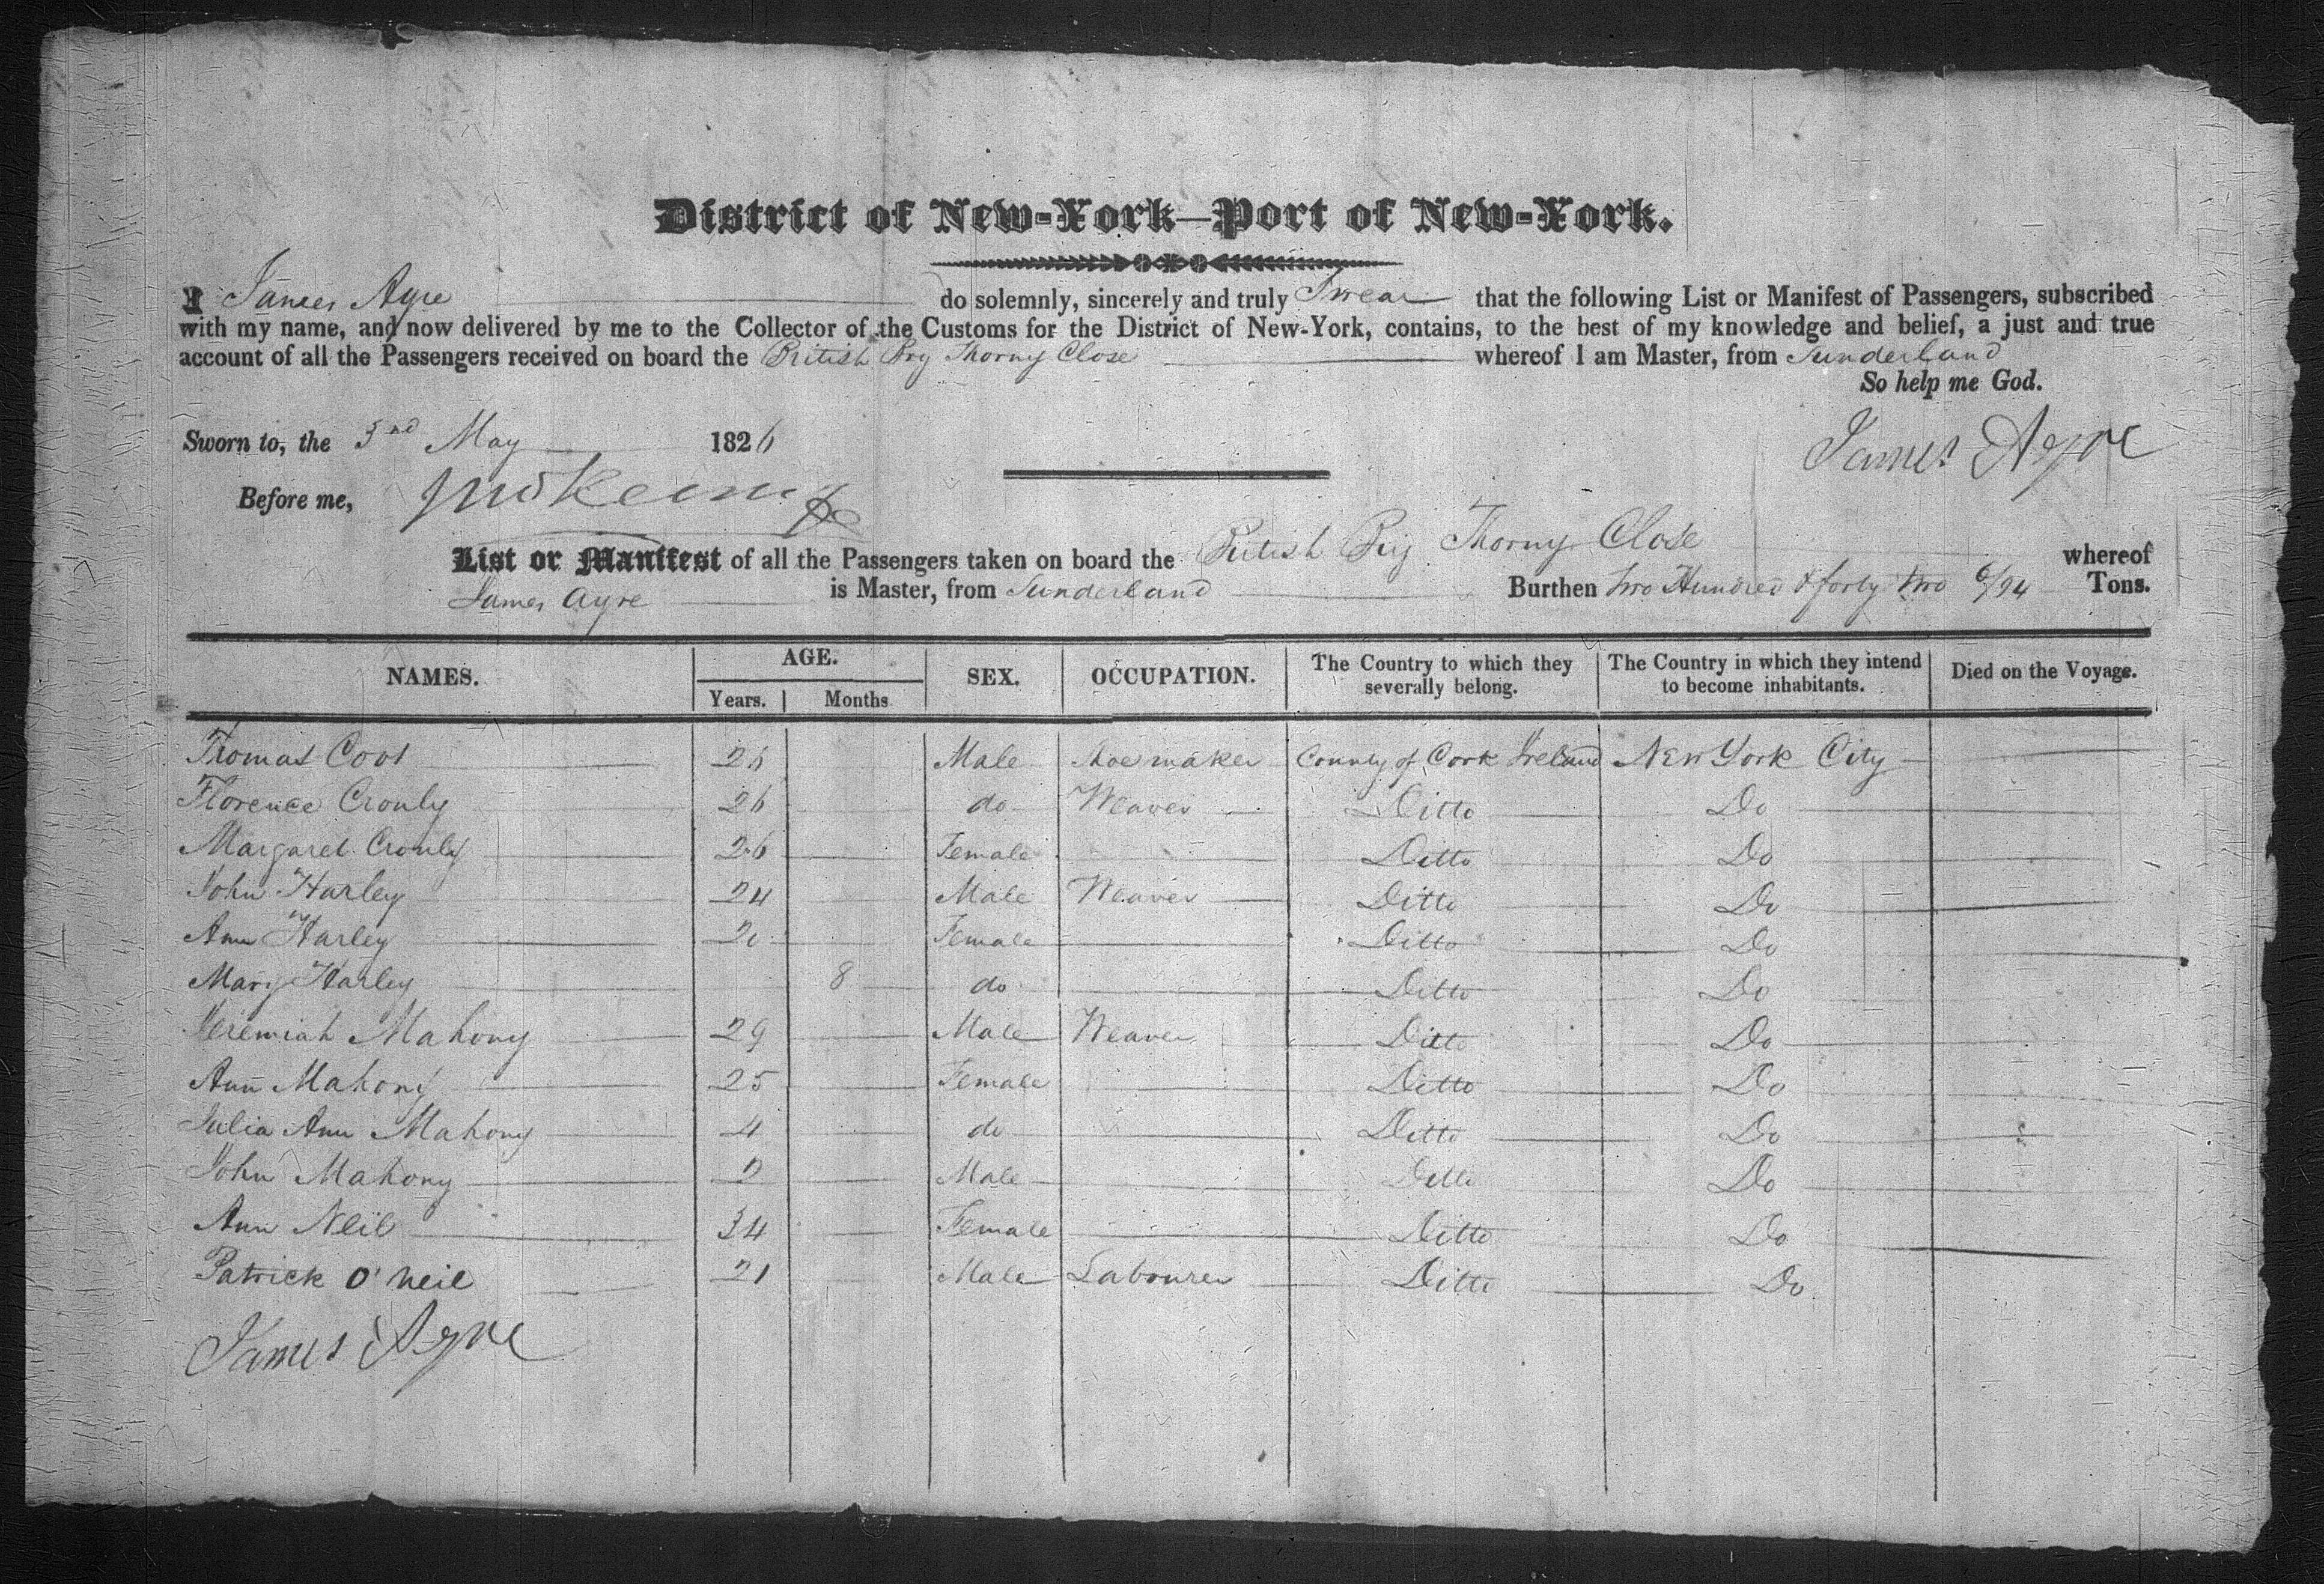 District of New-York—Port of New-York.
I James Ayre do solemnly, sincerely and truly Swear that the following List or Manifest of Passengers, subscribed
with my name, and now delivered by me to the Collector of the Customs for the District of New-York, contains, to the best of my knowledge and belief, a just and true
account of all the Passengers received on board the British Brig Thorny Close whereof I am Master, from Sunderland
So help me God.
Sworn to, the 3nd May 1826
James Ayre
Before me,
List or Manifest of all the Passengers taken on board the British Brig Thorny Close whereof
James Ayre is Master, from Sunderland Burthen Two Hundred & forty two 6/94 Tons.
NAMES. AGE. SEX. OCCUPATION. The Country to which they severally belong. The Country in which they intend to become inhabitants. Died on the Voyage.
Years. Months
Thomas 26 Male Shoemaker County of Cork Ireland New York City
Florence Cronly 26 do Weaver Ditto Do
Margaret Cronly 26 Female Ditto Do
John Harley 24 Male Weaver Ditto Do
Ann Harley Female Ditto Do
Mary Harley 8 do Ditto Do
Jeremiah Mahony 29 Male Weaver Ditto Do
Ann Mahony 25 Female Ditto Do
Julia Ann Mahony 4 do Ditto Do
John Mahony 2 Male Ditto Do
Ann Neil 34 Female Ditto Do
Patrick O'Neil 21 Male Labourer Ditto Do
James Ayre